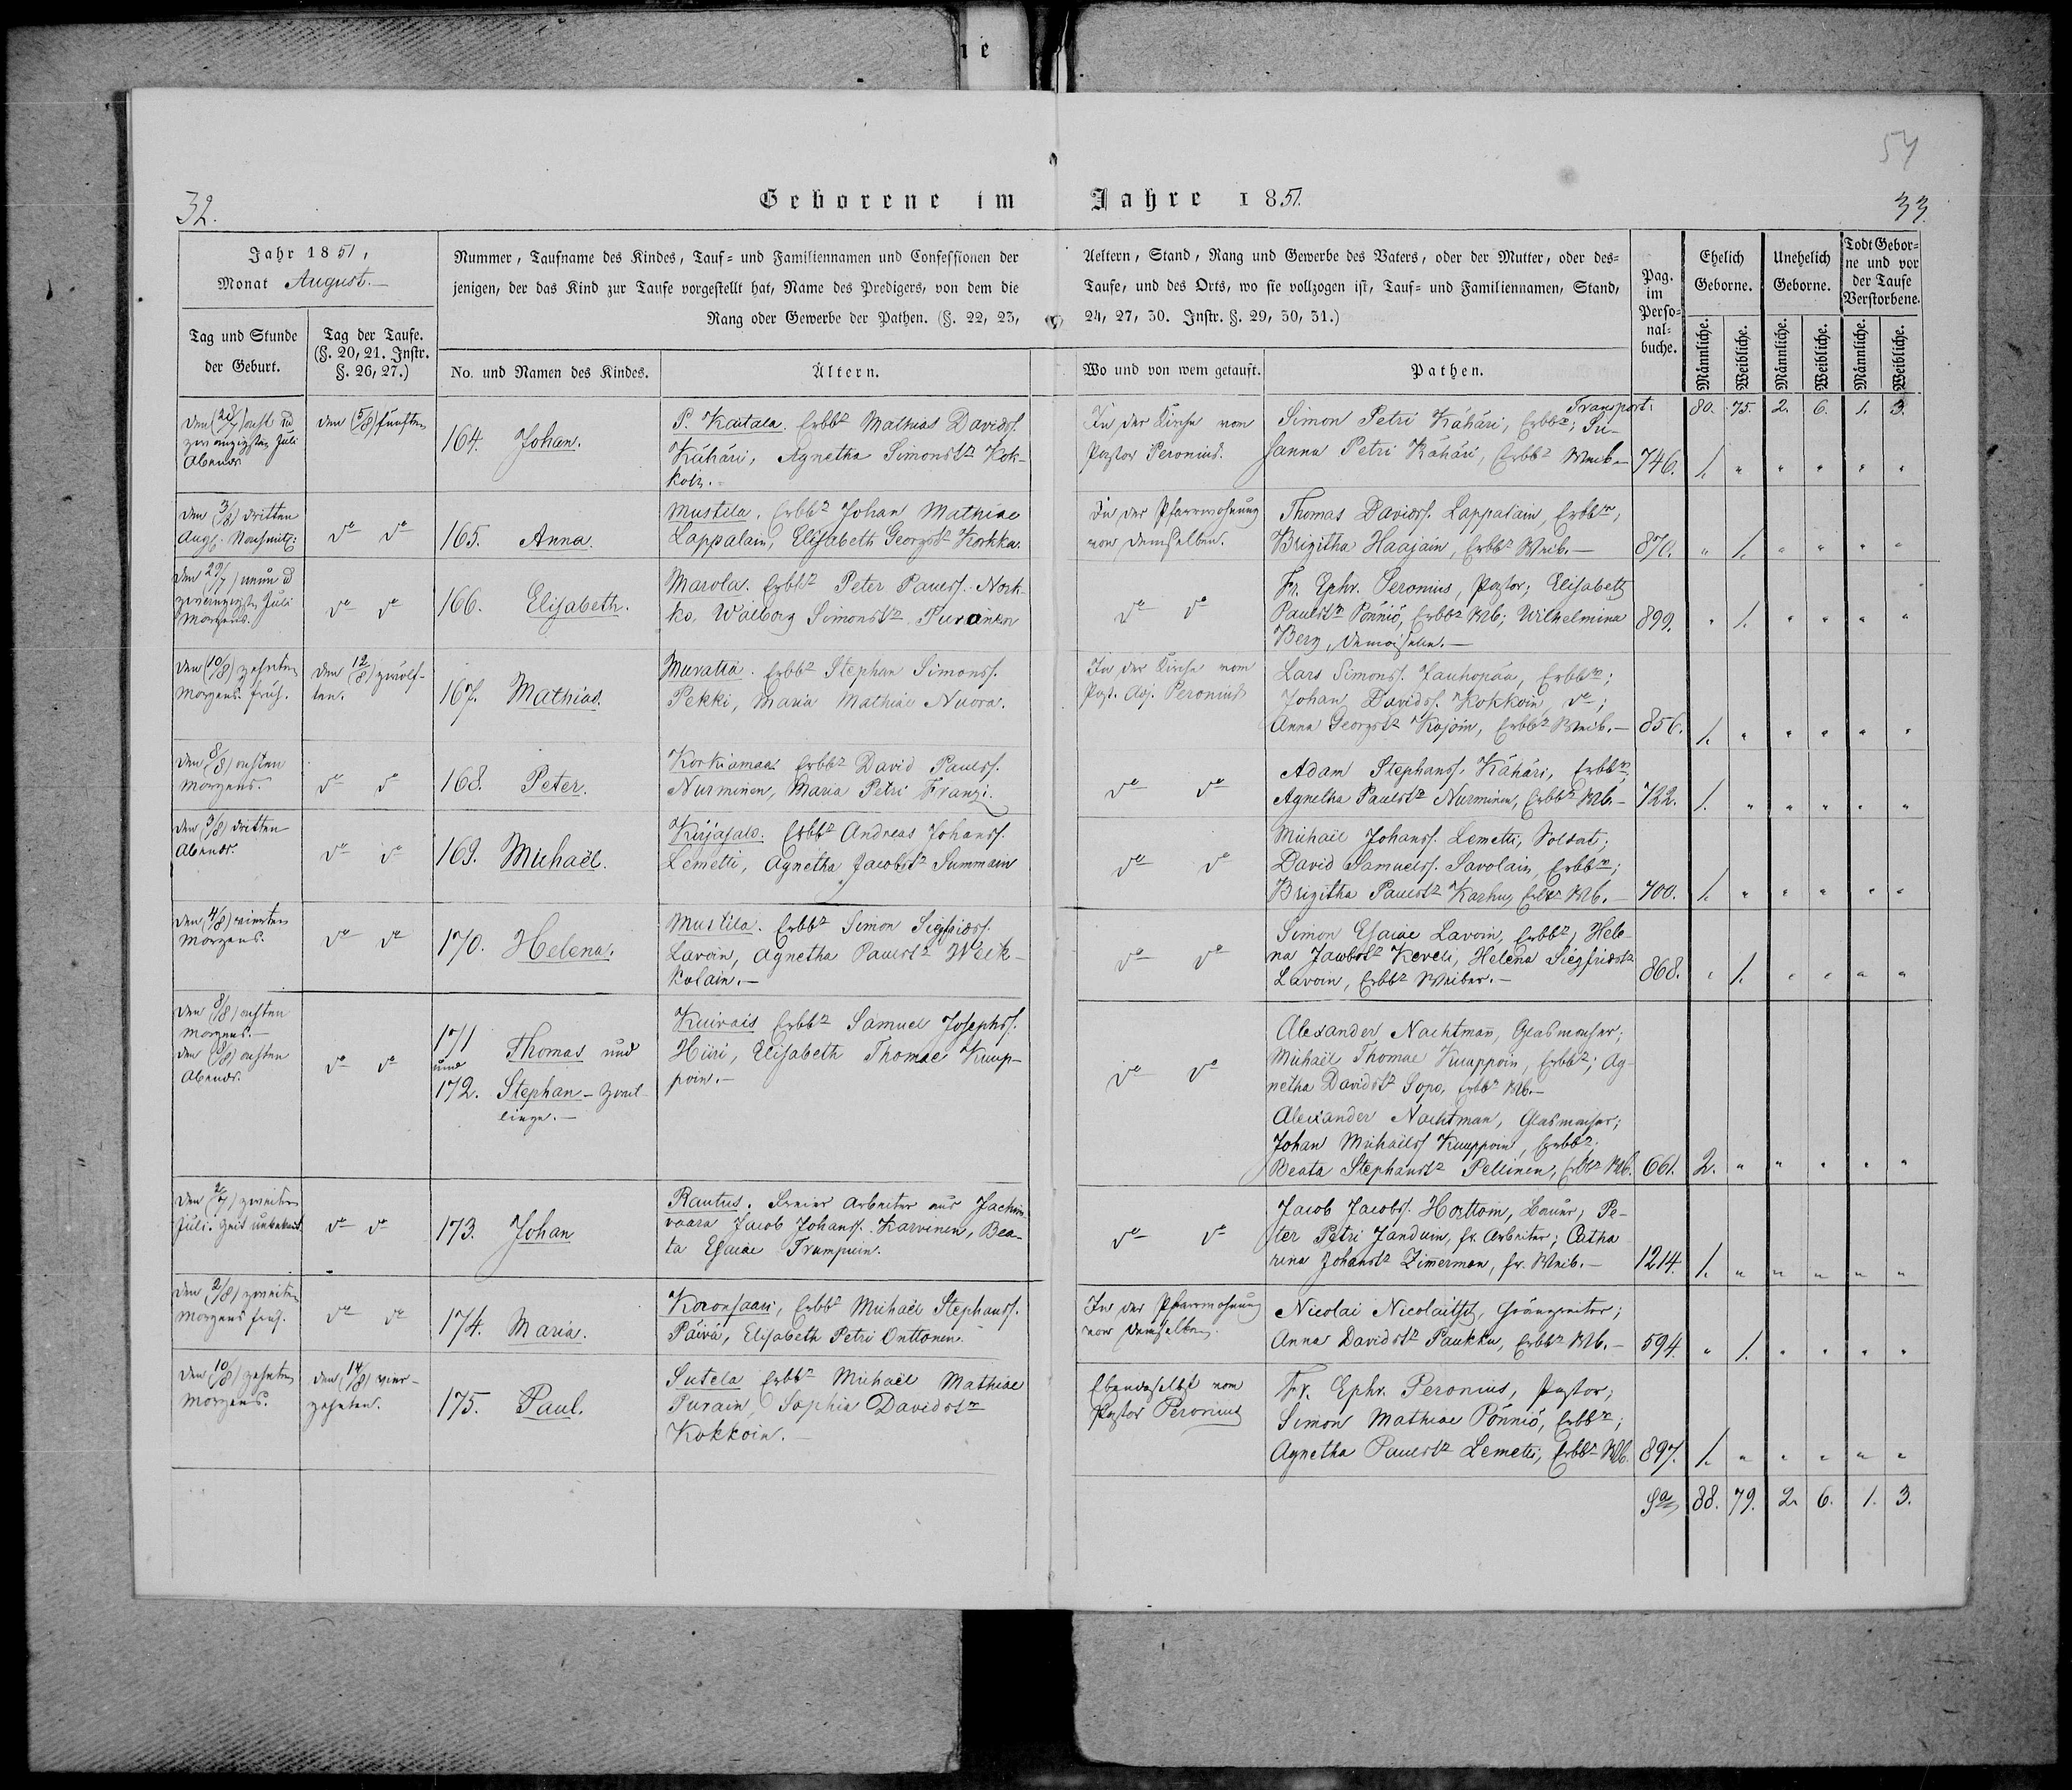 54
32.
Geborene im Jahre 1851.
33.
Jahr 1851,
Monat August.
Tag und Stunde
der Geburt.
Tag der Taufe.
(§. 20, 21. Instr.
§. 26, 27.)
Nummer, Taufname des Kindes, Tauf- und Familiennamen und Confessionen der
Aeltern, Stand, Rang und Gewerbe des Vaters, oder der Mutter, oder des-
jenigen, der das Kind zur Taufe vorgestellt hat, Name des Predigers, von dem die
Taufe, und des Orts, wo sie vollzogen ist, Tauf- und Familiennamen, Stand,
Rang oder Gewerbe der Pathen. (§. 22, 23,
24, 27, 30. Instr. §. 29, 30, 31.)
No. und Namen des Kindes.
Ältern.
Wo und von wem getauft.
Pathen.
Pag.
im
Perso-
nal-
buche.
Ehelich
Geborne.
Unehelich
Geborne.
Todt Gebor-
ne und vor
der Taufe
Verstorbene.
Männliche.
Weibliche.
Männliche.
Weibliche.
Männliche.
Weibliche.
Transport: 80. 75. 2. 6. 1. 3.
den (28/7) acht u
zwanzigsten Juli
Abends.
den (5/8) fünften
164. Johan.
P. Kaitala. Erbbr Mathias Davidss.
Kähäri, Agnetha Simonstr Kok-
koin.
In der Kirche vom
Pastor Peronius.
Simon Petri Kähäri, Erbbr; Su-
sanna Petri Kähäri, Erbbr Weib. 746. 1. " " " " "
den (3/8) dritten
Aug. Nachmitg:
do do
165. Anna.
Mustila. Erbbr Johan Mathiae
Lappalain, Elisabeth Georgstr Korkka.
In der Pfarrwohnung
von demselben.
Thomas Davidss. Lappalain, Erbbr;
Brigitha Haajain, Erbbr Weib. 870. " 1. " " " "
den (29/7) neun u
zwanzigsten Juli
Morgens.
do do
166. Elisabeth.
Marola. Erbbr Peter Paulss. Nork-
ko, Walborg Simonstr Purainen
do do
Fr. Ephr. Peronius, Pastor; Elisabeth
Paulstr Pönniö, Erbbr Wb; Wilhelmina
Berg, Demoiselle. 899. " 1. " " " "
den (10/8) zehnten
Morgens früh.
den (12/8) zwölf-
ten.
167. Mathias.
Muratta. Erbbr Stephan Simonss.
Pekki, Maria Mathiae Nuora.
In der Kirche vom
Past. Adj. Peronius
Lars Simonss. Jauhopää, Erbbr;
Johan Davidss. Kokkoin, do;
Anna Georgstr Kojoin, Erbbr Weib. 856. 1. " " " " "
den (8/8) achten
Morgens.
do do
168. Peter.
Korkiamaei Erbbr David Paulss.
Nurminen, Maria Petri Franzi.
do do
Adam Stephanss. Kähäri, Erbbr,
Agnetha Paulstr Nurminen, Erbbr Wb. 722. 1. " " " " "
den (3/8) dritten
Abends.
do do
169. Michaël.
Kirjasalo. Erbbr Andreas Johanss.
Lemetti, Agnetha Jacobstr Summain
do do
Michaël Johanss. Lemetti, Soldat;
David Samuelss. Savolain, Erbbr;
Brigitha Paulstr Karhu, Erbbr Wb. 700. 1. " " " " "
den (4/8) vierten
Morgens.
do do
170. Helena.
Mustila. Erbbr Simon Siegfridss.
Lavoin, Agnetha Paulstr Weik-
kolain.
do do
Simon Esaiae Lavoin, Erbbr, Hele-
na Jacobstr Keveli, Helena Siegfridstr
Lavoin, Erbbr Weiber. 868. " 1. " " " "
den (8/8) achten
Morgens.
den (8/8) achten
Abends.
do do
171
und
172.
Thomas und
Stephan - Zwil-
linge.
Kuivais Erbbr Samuel Josephss.
Hiiri, Elisabeth Thomae Kuup-
poin.
do do
Alexander Nachtman, Glasmacher;
Michaël Thomae Kuuppoin, Erbbr; Ag-
netha Davidstr Sopo, Erbbr Wb.
Alexander Nachtman, Glasmacher;
Johan Michaelss Kuuppoin, Erbbr.
Beata Stephanstr Pellinen, Erbbr Wb. 661. 2. " " " " "
den (2/7) zweiten
Juli. Zeit unbekannt.
do do
173. Johan
Rautus. Freier Arbeiter aus Jachim-
vaara Jacob Johanss. Karvinen, Bea-
ta Esaiae Trumpuin.
do do
Jacob Jacobss. Horttoin, Bauer, Pe-
ter Petri Janduin, fr. Arbeiter; Catha
rina Johanstr Zimerman, fr. Weib. 1214. 1. " " " " "
den (2/8) zweiten
Morgens früh.
do do
174. Maria.
Koronsaari, Erbbr Michaël Stephanss.
Päivä, Elisabeth Petri Onttonen.
In der Pfarrwohnung
von demselben.
Nicolai Nicolaitsch, Gränzreiter;
Anna Davidstr Paukku, Erbbr Wb. 594. " 1. " " " "
den (10/8) zehnten
Morgens.
den (14/8) vier-
zehnten.
175. Paul.
Sutela Erbbr Michaël Mathiae
Purain, Sophia Davidstr
Kokkoin.
Ebendaselbst vom
Pastor Peronius
Fr. Ephr. Peronius, Pastor;
Simon Mathiae Pönniö, Erbbr;
Agnetha Paulstr Lemetti, Erbbr Wb. 897. 1. " " " " "
Sa 88. 79. 2. 6. 1. 3.